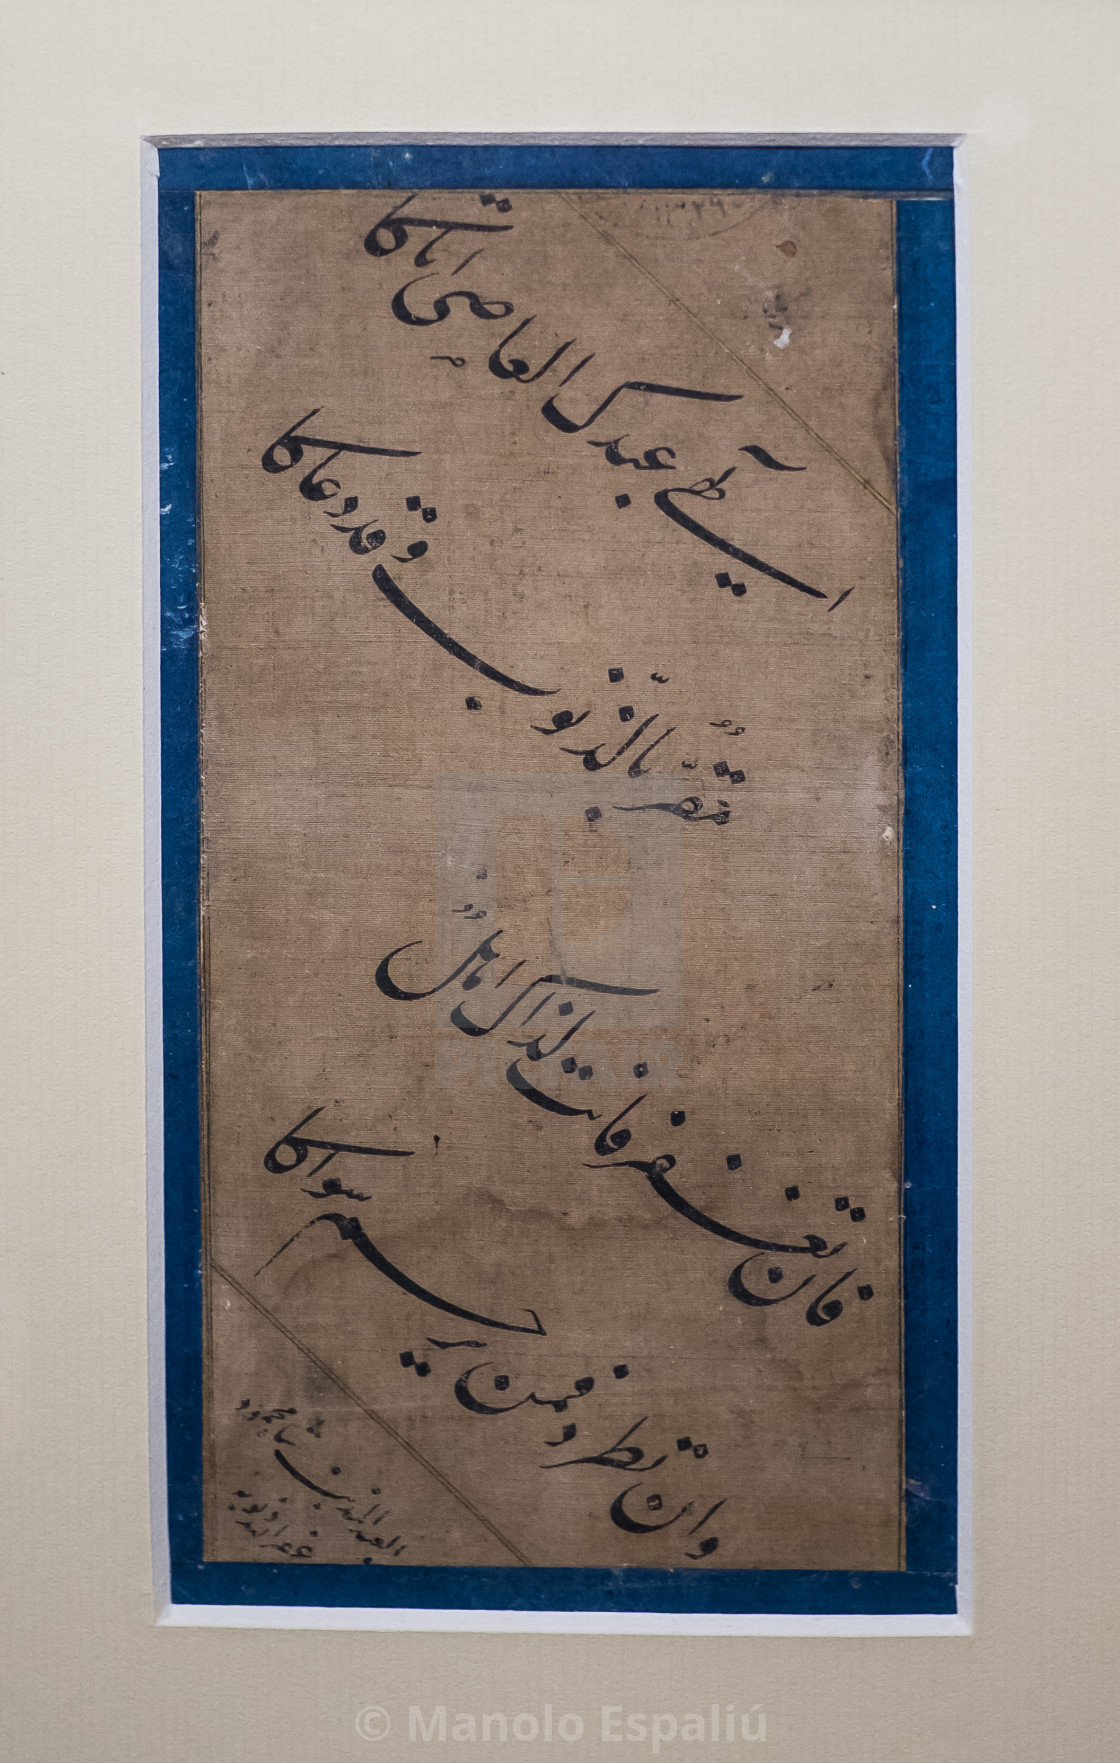 الهی عبدک العاصی اتاکا
مُقرّ بالذّنوب و قد دعاکا
فان تغفر فانت لذاک اهلٌ
و ان تطرد فمن یرحم سواکا
العبد المذنب
غفر ذنوبه
© Manolo Espaliú